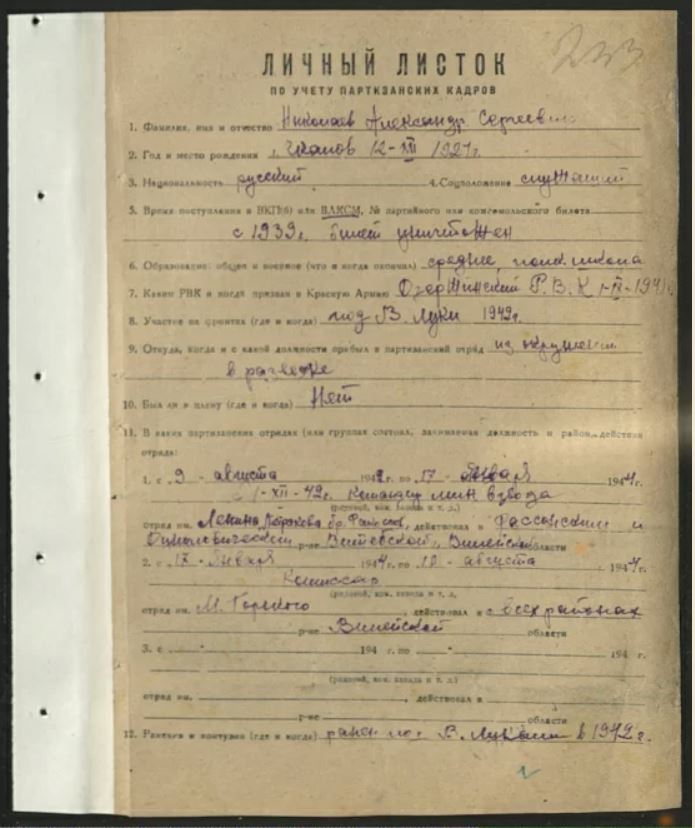 233
ЛИЧНЫЙ ЛИСТОК
ПО УЧЕТУ ПАРТИЗАНСКИХ КАДРОВ
1. Фамилия, имя и отчество Николаев Александр Сергеевич
2. Год и место рождения г. Чкалов 12-XII 1921г.
3. Национальность русский 4. Соцположение служащий
5. Время поступления в ВКП(б) или ВЛКСМ, № партийного или комсомольского билета
с 1939г. билет уничтожен
6. Образование: общее и военное (что и когда окончил) среднее, полк. школа
7. Каким РВК и когда призван в Красную Армию Р.В.К
8. Участие на фронтах (где и когда) под В. Луки 1942г.
9. Откуда, когда и с какой должности прибыл в партизанский отряд из окружения
в разведке
10. Был ли в плену (где и когда) Нет
11. В каких партизанских отрядах (или группах) состоял, занимаемая должность и район действия
отряда:
1. с 9 - августа 1942 г. по 17 - января 1944 г.
с 1-XII-42г. Командир мин. взвода
(рядовой, ком. взвода и т. д.)
отряд им. Ленина, бр. действовал в и
р-не Витебской, Вилейской области
2. с 17 - января 1944 г. по 10 - августа 1944 г.
Комиссар
(рядовой, ком. взвода и т. д.)
отряд им. М. Горького, действовал в всех районах
р-не Вилейской области
3. с 194 г. по 194 г.
(рядовой, ком. взвода и т. д.)
отряд им. , действовал в
р-не области
12. Ранения и контузии (где и когда) ранен под В. Луками в 1942 г.